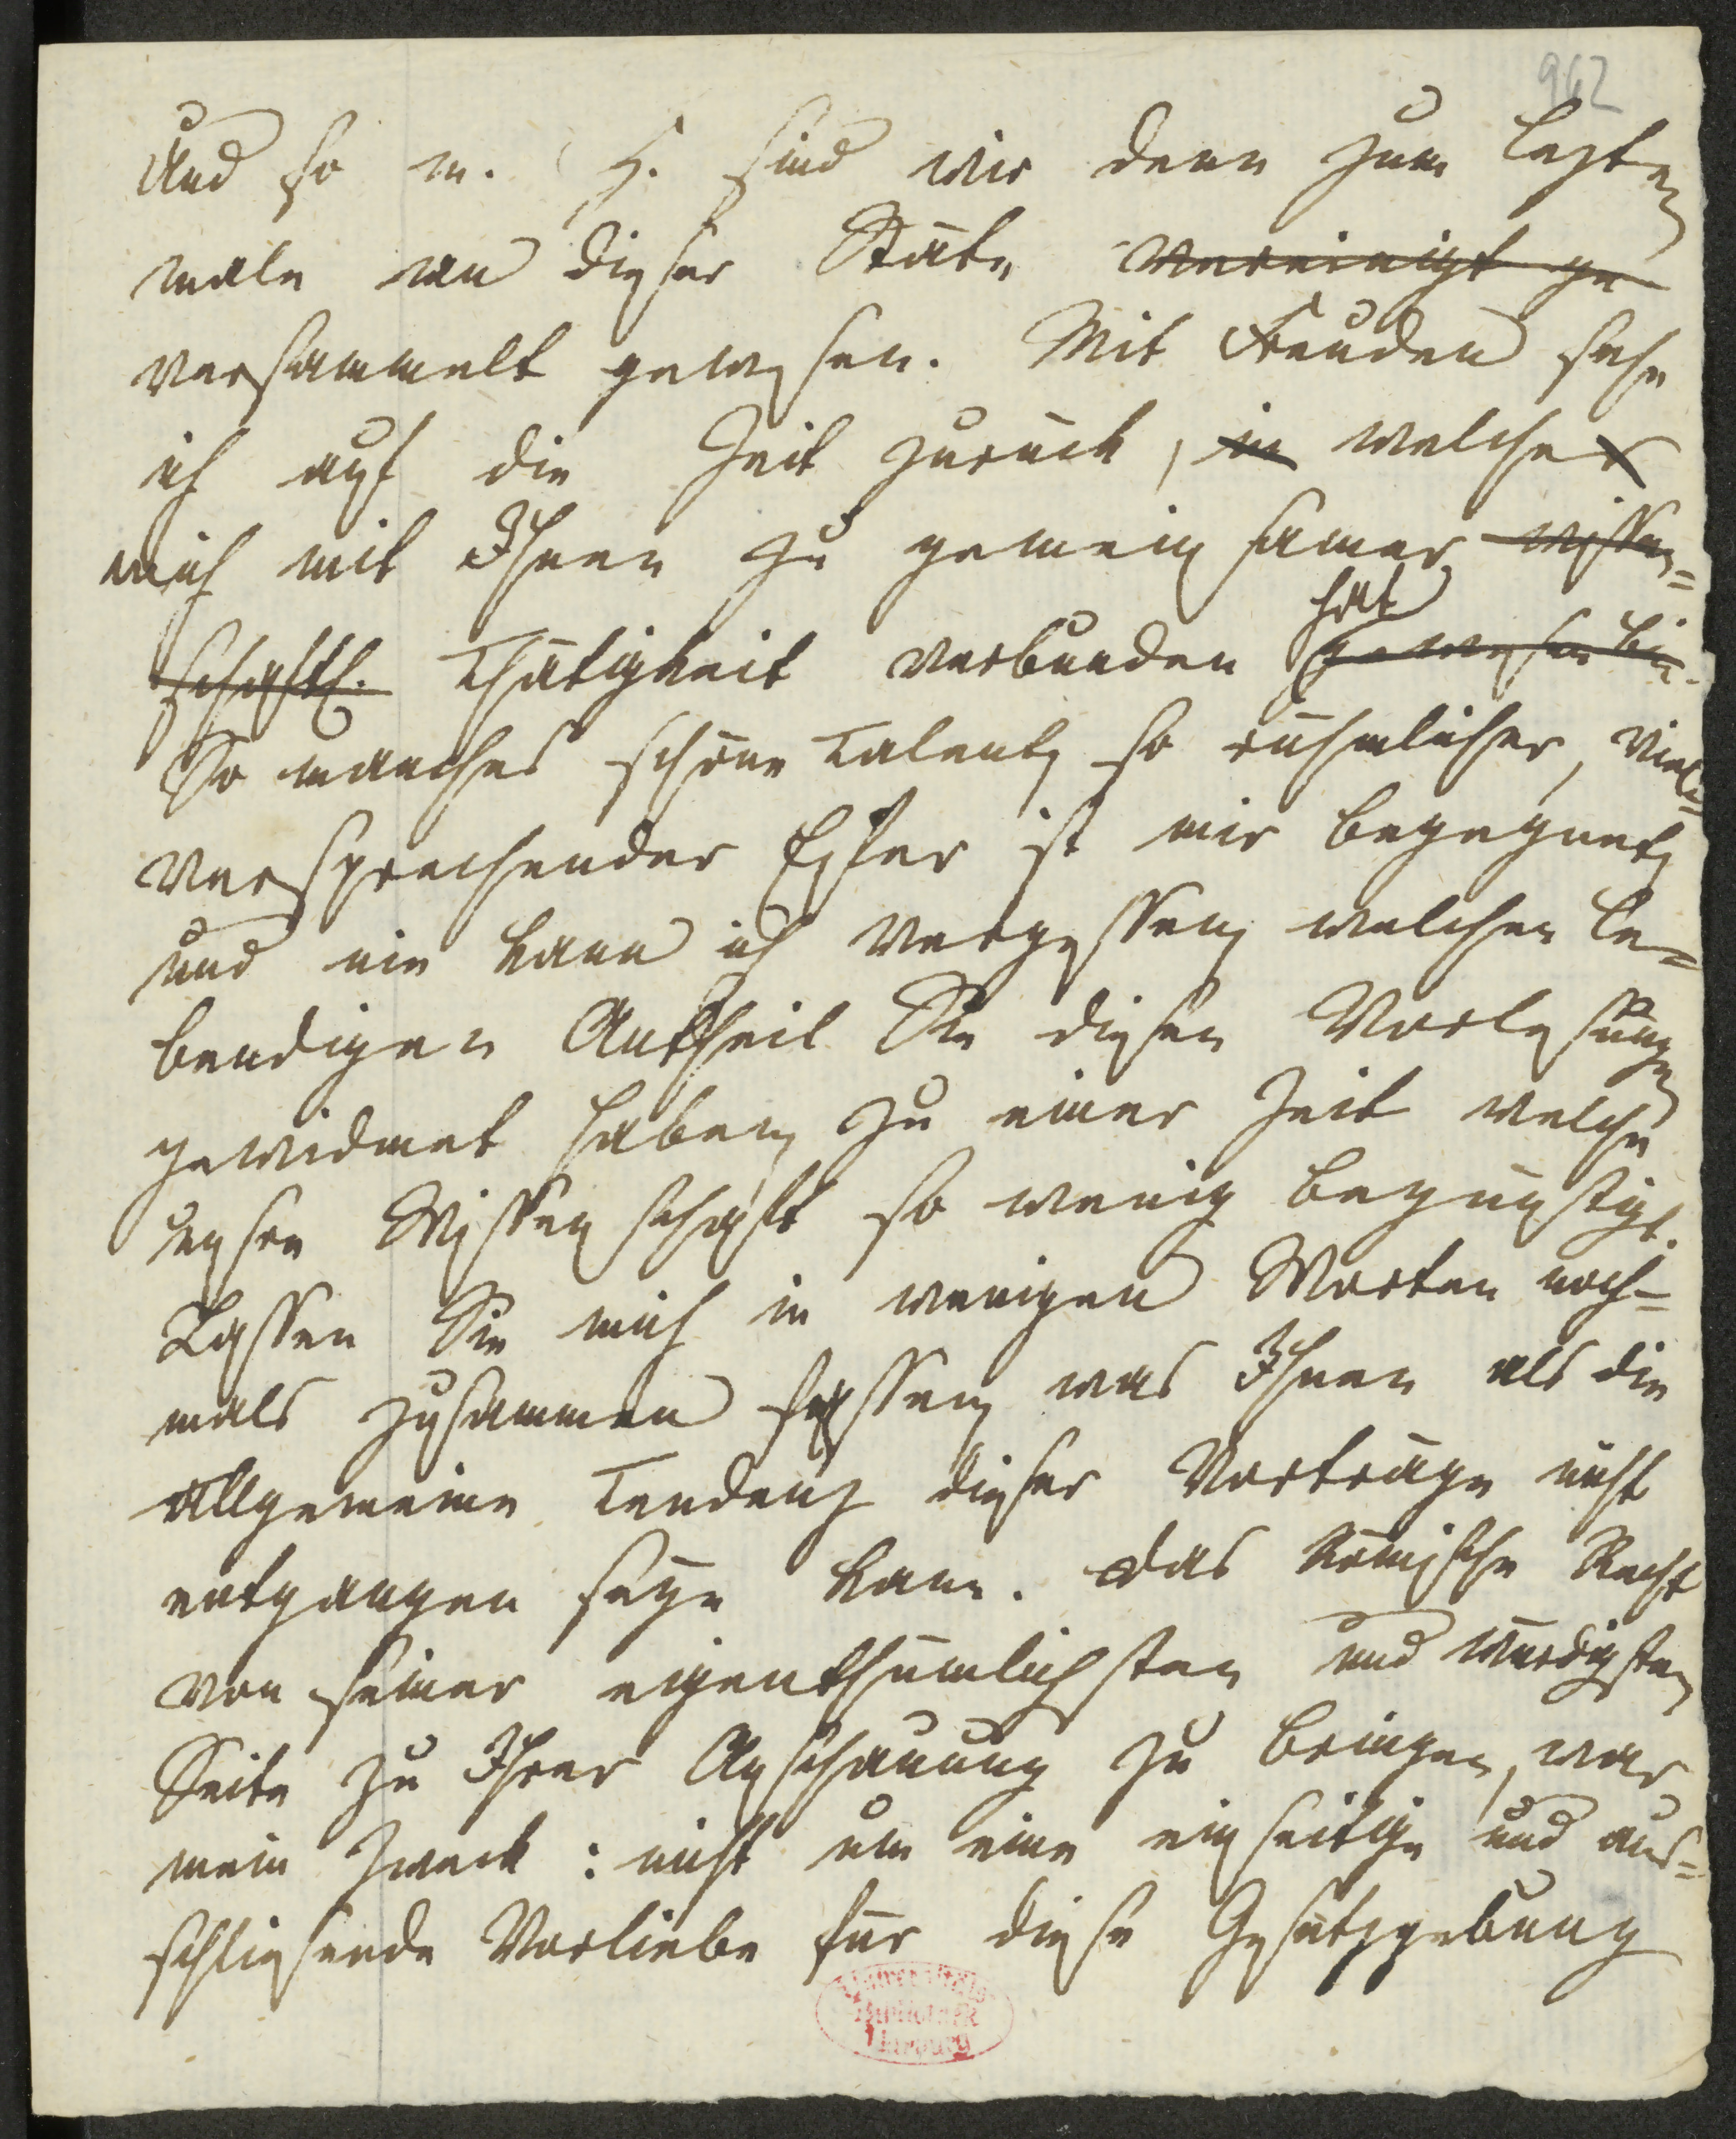 962
Und so m. H. sind wir denn zum lezten
male an dieser Stäte vereinigt ge
versammelt gewesen. Mit Freuden sehe
ich auf die Zeit zurück, in welcher
mich mit Ihnen zu gemeinsamer wissen=
hat
schaftl. Thätigkeit verbunden gewesen bin.
So manches schöne Talent, so rühmlicher, viel=
versprechender Eifer ist mir begegnet,
und nie kann ich vergessen, welchen le=
bendigen Antheil Sie diesen Vorlesungen
gewidmet haben, zu einer Zeit welche
unsre Wissenschaft so wenig begünstigt.
Lassen Sie mich in wenigen Worten noch=
mals zusammen fassen, was Ihnen als die
allgemeine Tendenz dieser Vorträge nicht
entgangen seyn kann. Das Römische Recht
von seiner eigenthümlichsten und würdigsten
Seite zu Ihrer Anschauung zu bringen, war
mein Zweck: nicht um eine einseitige und aus=
schliesende Vorliebe für diese Gesetzgebung
Universitäts-
Bibliothek
Marburg